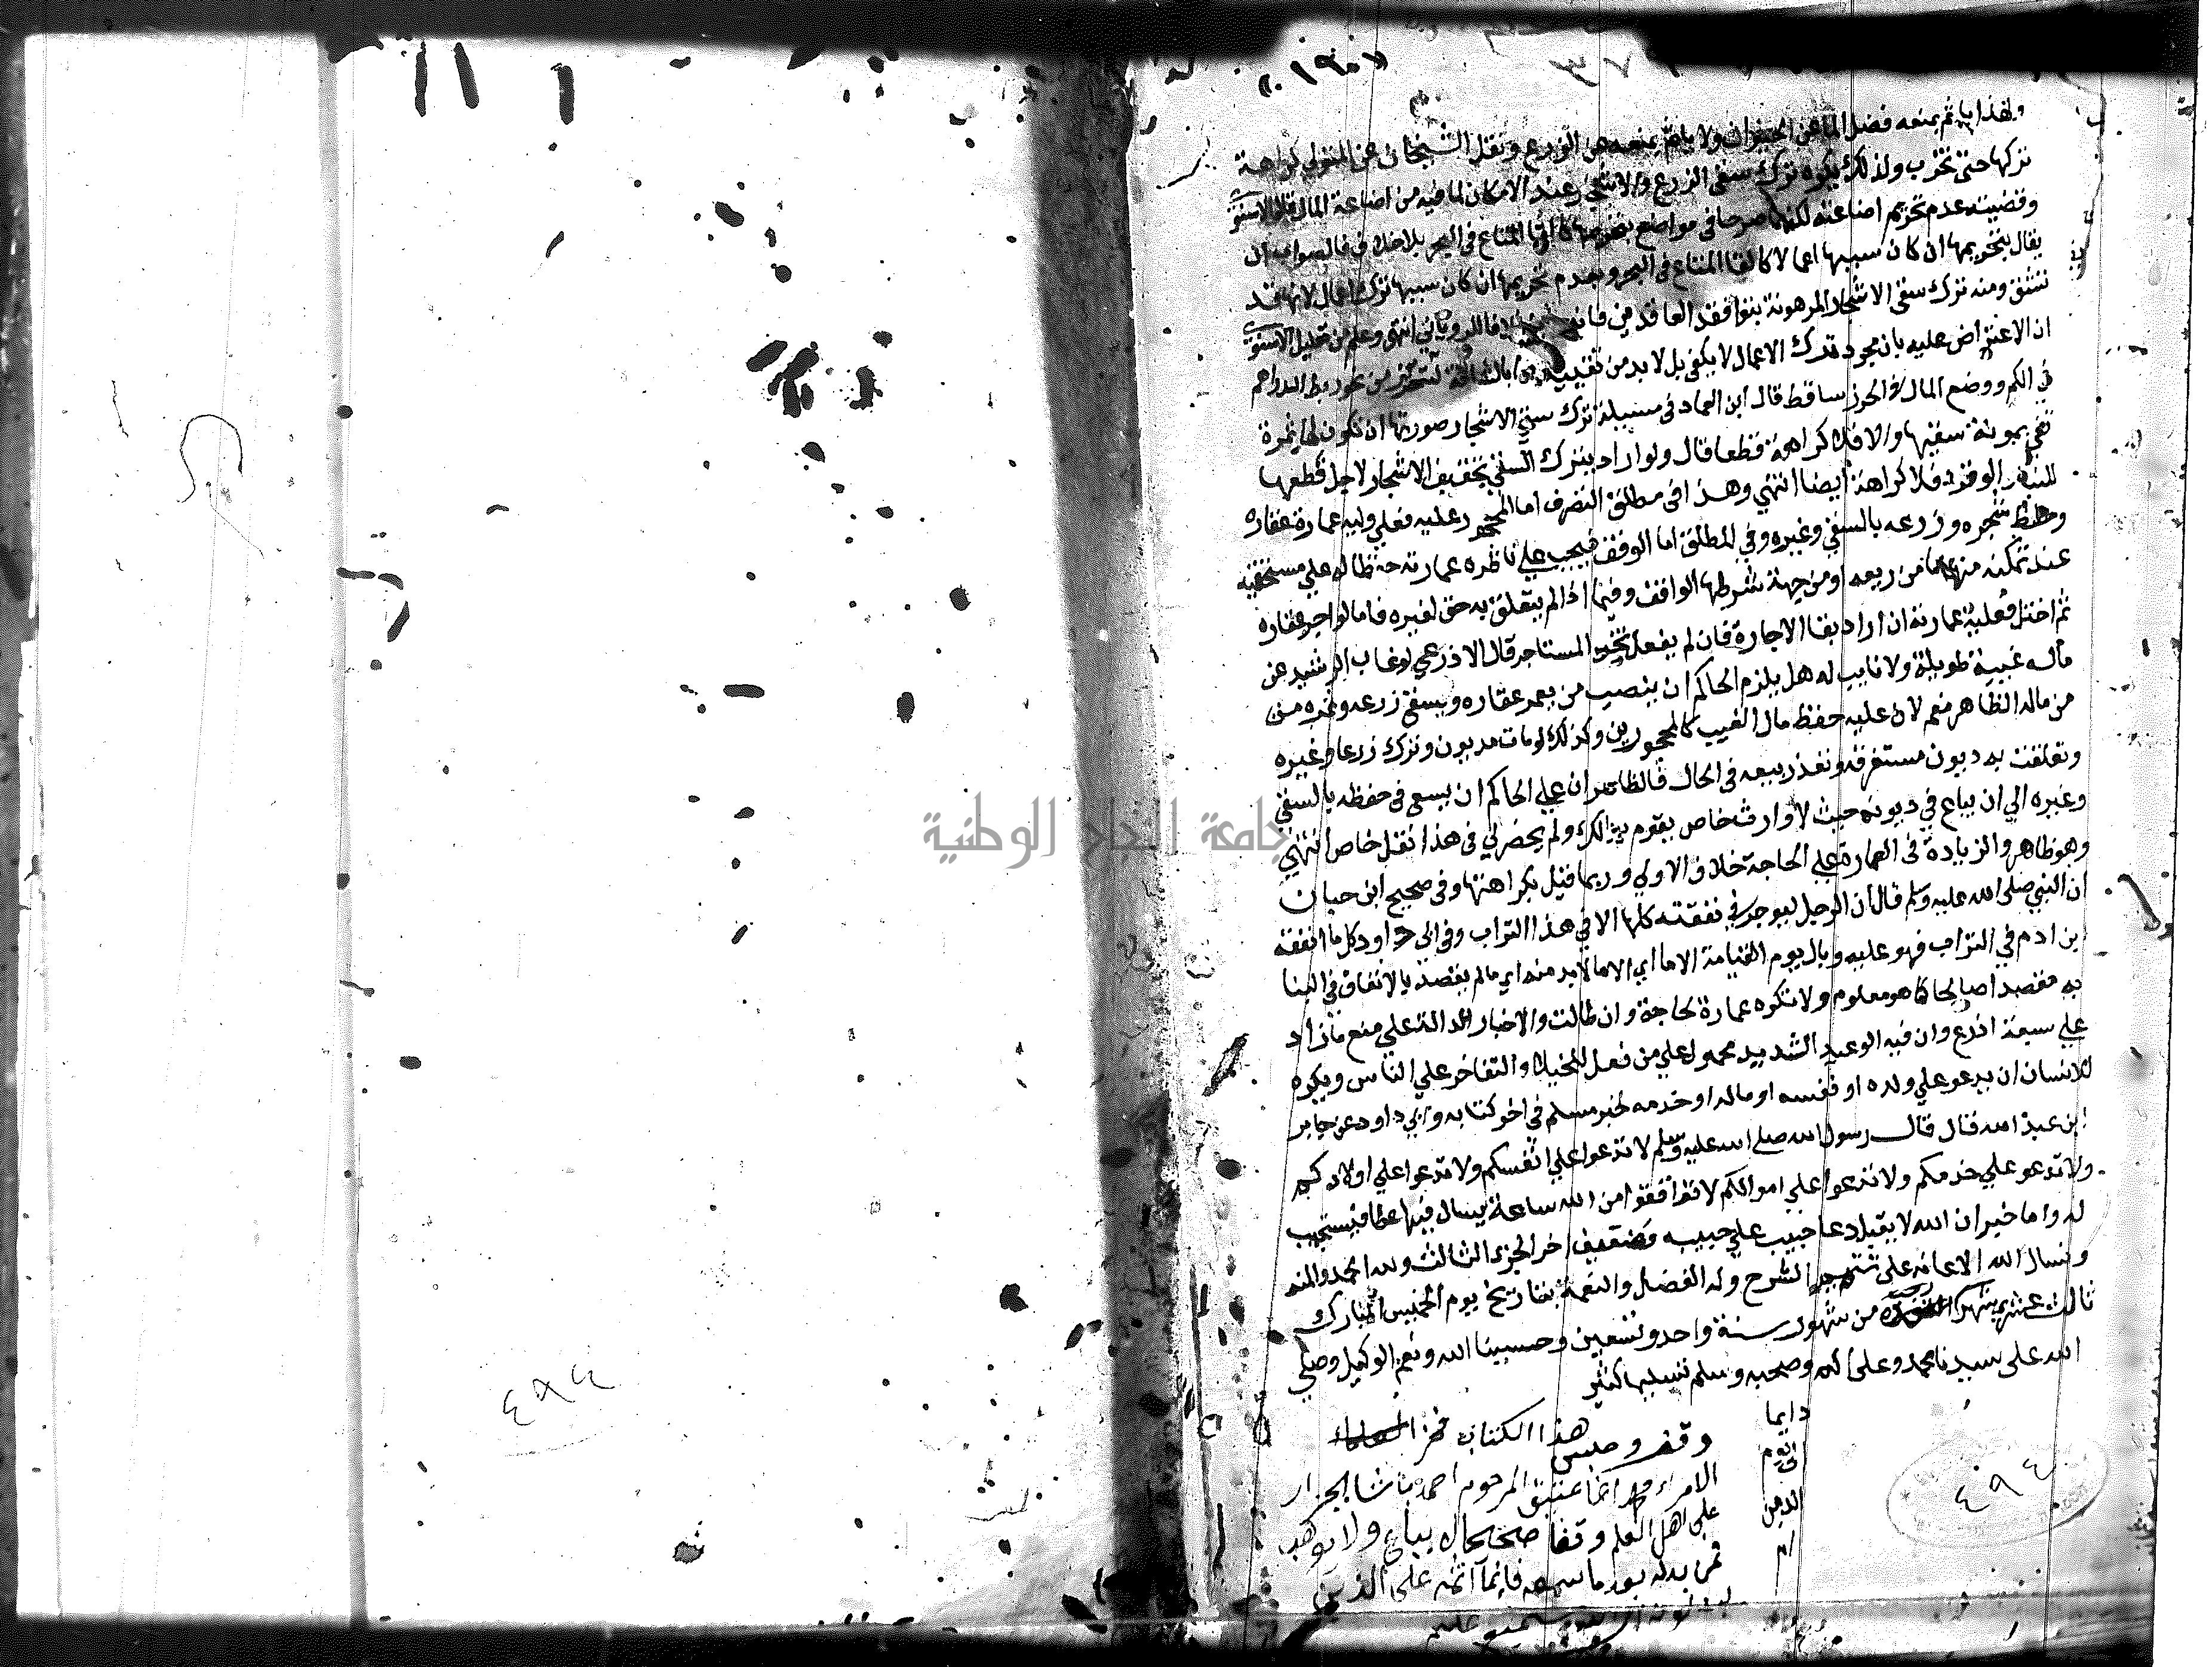 ولهذا ياثم بمنعه فضل الما عن الحيوان ولا ياثم بمنعه عن الزرع ونقل الشيخان عن المتولي كراهة
تركها حتى تخرب ولذلك يكره ترك سقي الزرع والاشجار عند الامكان لما فيه من اضاعة المال قال الاسنوي
وقضيته عدم تحريم اضاعته لكنهما صرحا في مواضع بتحريمها كالقا المتاع في البحر بلا خوف فالصواب ان
يقال بتحريمها ان كان سببها اعمالا كالقا المتاع في البحر وبعدم تحريمها ان كان سببها ترك اعمال لانها قد
تشق ومنه ترك سقي الاشجار المرهونة بتوافق العاقدين فانه جايز خلافا للروياني انتهى وعلم من تعليل الاسنوي
ان الاعتراض عليه بان مجرد ترك الاعمال لا يكفي بل لا بد من تقييده بالمشاقة ليحترز من نحو ربط الدراهم
في الكم ووضع المال في الحرز ساقط قال ابن العماد في مسيلة ترك سقي الاشجار صورتها ان تكون لها ثمرة
تفي بمونة سقيها والا فلا كراهة قطعا قال ولو اراد بترك السقي تجفيف الاشجار لاجل قطعها
للبنا او الوقود فلا كراهة ايضا انتهي وهذا في مطلق التصرف اما المحجور عليه فعلي وليه عمارة عقاره
وحفظ شجره وزرعه بالسقي وغيره وفي المطلق اما الوقف فيجب علي ناظره عمارته حفظا له علي مستحقيه
عند تمكنه منها اما من ريعه او من جهة شرطها الواقف وفيما اذا لم يتعلق به حق لغيره فاما لو اجر عقاره
ثم اختل فعليه عمارته ان اراد بقا الاجارة فان لم يفعل تخير المستاجر قال الاذرعي لو غاب الرشيد عن
ماله غيبة طويلة ولا نايب له هل يلزم الحاكم ان ينصب من يعمر عقاره ويسقي زرعه وثمره من
من ماله الظاهر نعم لان عليه حفظ مال الغيب كالمحجورين وكذلك لو مات مديون وترك زرعا وغيره
وتعلقت به ديون مستغرقة وتعذر بيعه في الحال فالظاهر ان علي الحاكم ان يسعى في حفظه بالسقي
وغيره الي ان يباع في ديونه حيث لا وارث خاص يقوم بذلك ولم يحضرني في هذا نقل خاص انتهي
وهو ظاهر والزيادة في العمارة علي الحاجة خلاف الاولي وربما قيل بكراهتها وفي صحيح ابن حبان
ان النبي صلى الله عليه وسلم قال ان الرجل ليوجر في نفقته كلها الا في هذا التراب وفي ابي داود كل ما انفقه
ابن ادم في التراب فهو عليه وبال يوم القيامة الا ما اي الا ما لا بد منه اي ما لم يقصد بالانفاق في البنا
به مقصدا صالحا كما هو معلوم ولا تكره عمارة لحاجة وان طالت والاخبار الدالة علي منع ما زاد
علي سبعة اذرع وان فيه الوعيد الشديد محمول علي من فعل للخيلا والتفاخر علي الناس ويكره
للانسان ان يدعو علي ولده او نفسه او ماله او خدمه لخبر مسلم في اخر كتابه وابي داود عن جابر
ابن عبد الله قال قال رسول الله صلى الله عليه وسلم لا تدعوا علي انفسكم ولا تدعوا علي اولادكم
ولا تدعو علي خدمكم ولا تدعوا علي اموالكم لا توافقوا من الله ساعة يسال فيها عطا فيستجيب
له واما خبر ان الله لا يقبل دعا حبيب علي حبيبه فضعيف اخر الجزء الثالث ولله الحمد والمنه
ونسال الله الاعانه على الشرح وله الفضل والنعمة بتاريخ يوم الخميس المبارك
ثالث عشرين شهر من شهور سنة واحد وتسعين وحسبنا الله ونعم الوكيل وصلي
الله على سيدنا محمد وعلى اله وصحبه وسلم تسليما كثير
دايما
الي يوم
الدين
وقف وحبس هذا الكتاب فخر
الامراء اغا عتيق المرحوم احمد باشا الجزار
على اهل العلم وقفا صحيحا لا يباع ولا يوهب
فمن بدله بعد ما سمعه فانما اثمه على الذين
يبدلونه ان الله سميع عليم
٤٩٤
٤٩٤
جامعة النجاح الوطنية